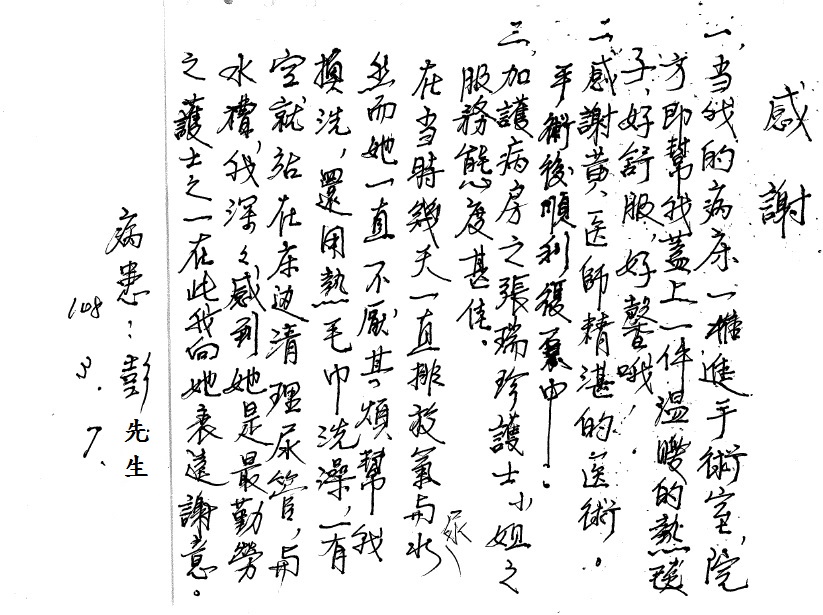 感謝
一、当我的病床一推進手術室,院
方即幫我蓋上一件溫暖的熱毯
子,好舒服,好馨哦!
二、感謝黃医師精湛的医術。
手術後順利復原中。
三、加護病房之張瑞珍護士小姐之
服務態度甚佳。
在当時幾天一直排放氣与水(尿)
然而她一直不厭其煩幫我
損洗,還用熱毛巾洗澡,一有
空就站在床边清理尿管,与
水槽,我深々感到她是最勤勞
之護士之一在此我向她表達謝意。
病患:彭先生
108.3.7.